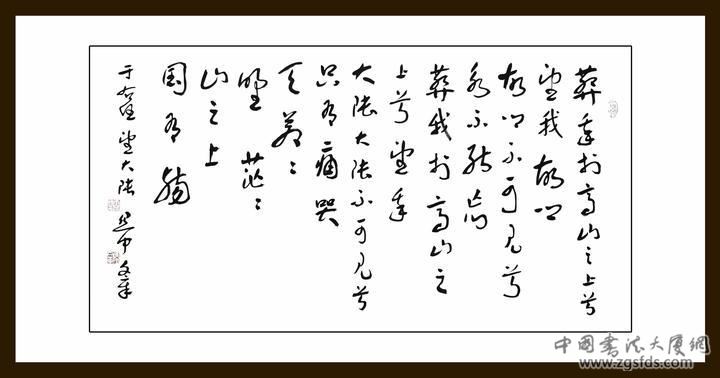 葬我於高山之上兮
望我故乡
故乡不可见兮
永不能忘
葬我於高山之
上兮望我
大陆大陆不可见兮
只有痛哭
天苍苍
野茫茫
山之上
国有殇
于右任望大陆
中国书法大厦网
www.zgsfds.com